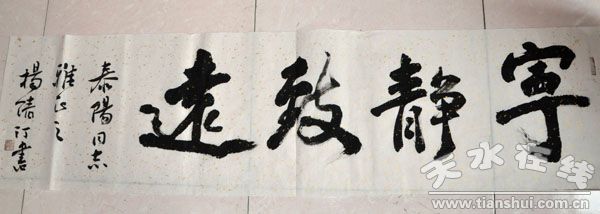 寧静致遠
泰陽同志
雅正之
楊清汀書
天水在线
www.tianshui.com.cn